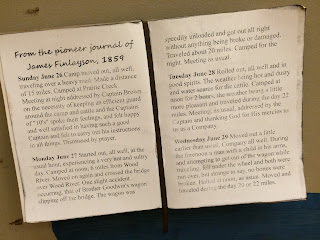 From the pioneer journal of
James Finlayson, 1859
Sunday June 26 Camp moved out, all well,
traveling over a heavy road. Made a distance
of 15 miles. Camped at Prairie Creek.
Meeting at night addressed by Captain Brown,
on the necessity of keeping an efficient guard
around the camp and cattle and the Captain
of "10's" spoke their feelings, and felt happy
and well satisfied in having such a good
Captain and felt to carry out his instructions
in all things. Dismissed by prayer.
Monday June 27 Started out, all well, at the
usual hour, experiencing a very hot and sultry
day. Camped at noon, 6 miles from Wood
River. Moved on again and crossed the bridge
over Wood River. One slight accident
occurring, that of Brother Goodwin's wagon
slipping off the bridge. The wagon was
speedily unloaded and got out all right
without anything being broke or damaged.
Traveled about 20 miles. Camped for the
night. Meeting as usual.
Tuesday June 28 Rolled out, all well and in
good spirits. The weather being hot and dusty
and water scarce for the cattle. Camped at
noon for 2 hours, the weather being a little
more pleasant and traveled during the day 22
miles. Meeting as usual, addressed by the
Captain and thanking God for His mercies to
us as a Company.
Wednesday June 29 Moved out a little
earlier than usual. Company all well. During
the forenoon a man with a child in his arms,
and attempting to get out of the wagon while
traveling, fell under the wheel and both were
run over, but strange to say, no bones were
broken. Halted at noon, as usual. Moved and
traveled during the day 20 or 22 miles.